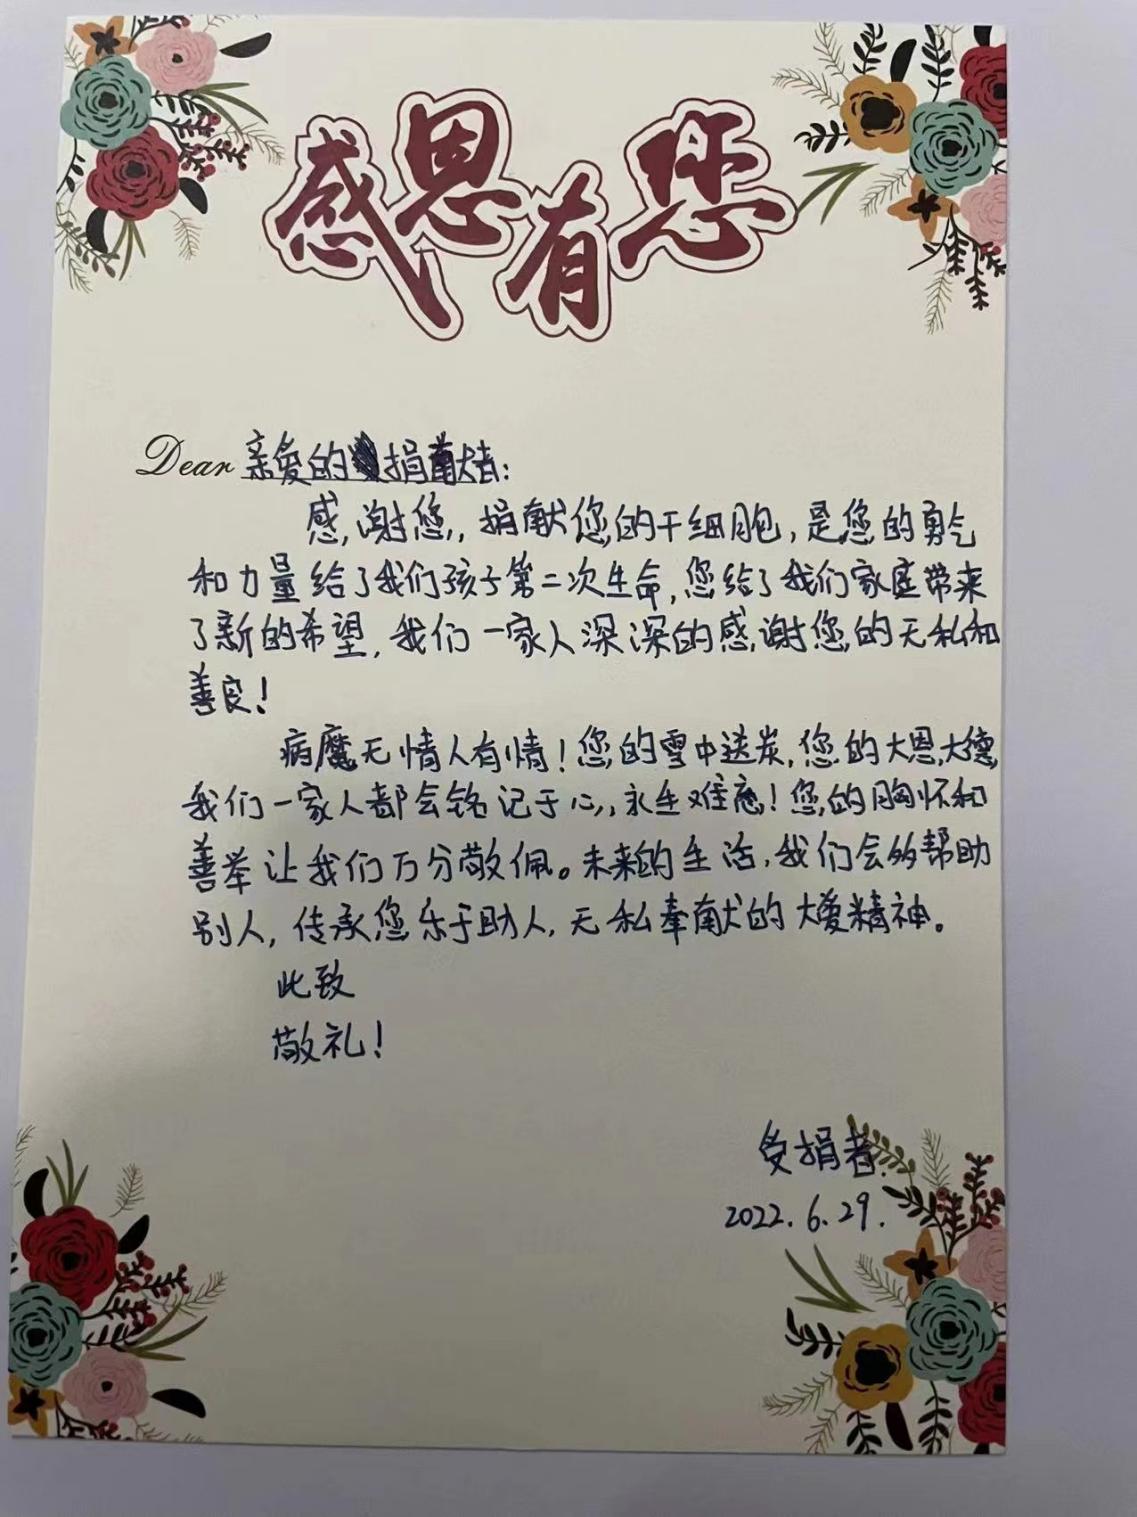 感恩有您
Dear 亲爱的捐献者:
感谢您,捐献您的干细胞,是您的勇气
和力量给了我们孩子第二次生命,您给了我们家庭带来
了新的希望,我们一家人深深的感谢您的无私和
善良!
病魔无情人有情!您的雪中送炭,您的大恩大德
我们一家人都会铭记于心,永生难忘!您的胸怀和
善举让我们万分敬佩。未来的生活,我们会多帮助
别人,传承您乐于助人,无私奉献的大爱精神。
此致
敬礼!
受捐者.
2022.6.29.